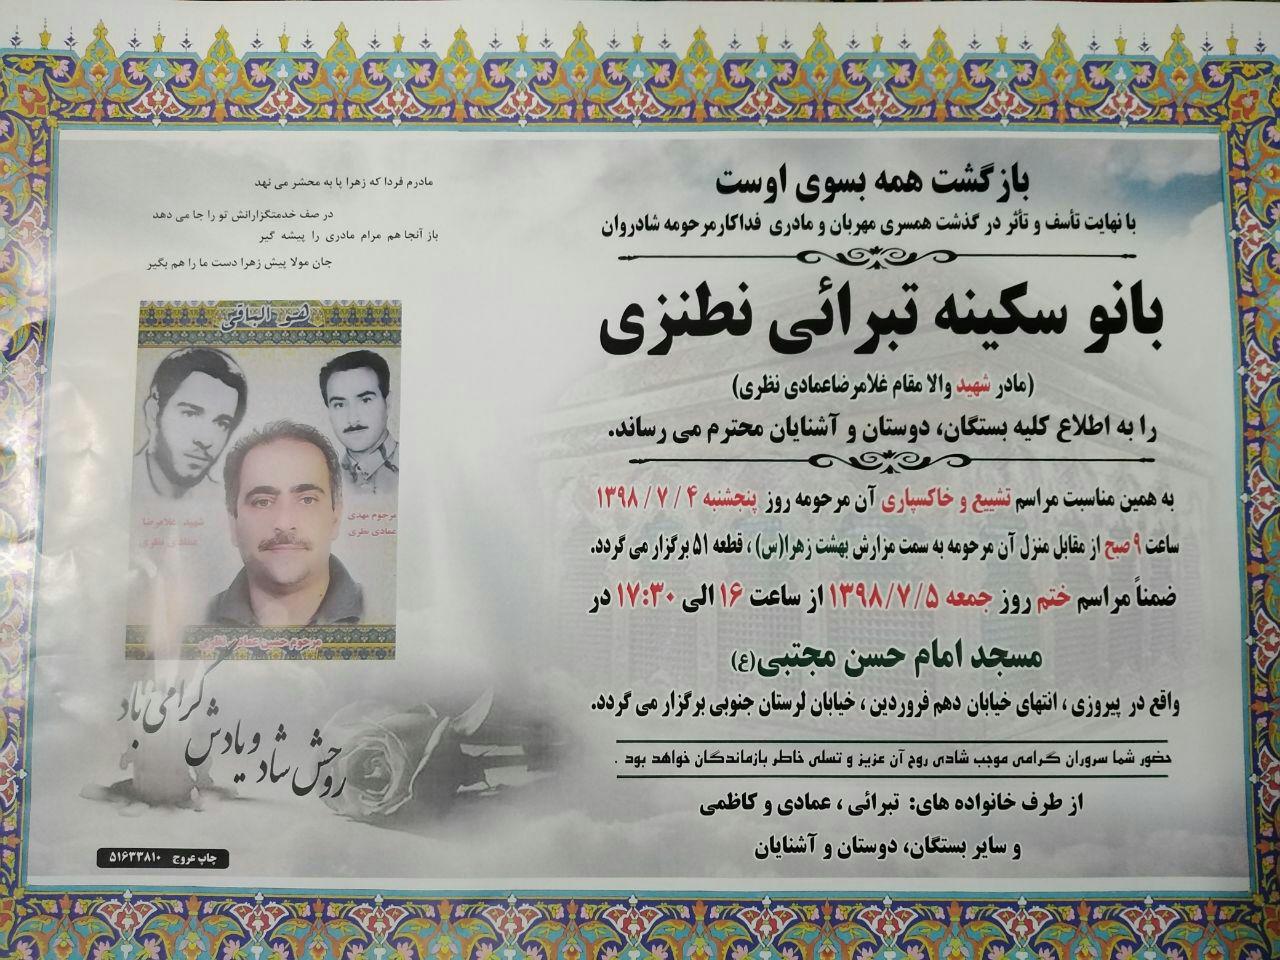 بازگشت همه بسوی اوست
با نهایت تأسف و تأثر در گذشت همسری مهربان و مادری فداکارمرحومه شادروان
بانو سکینه تبرائی نطنزی
(مادر شهید والا مقام غلامرضاعمادی نظری)
را به اطلاع کلیه بستگان، دوستان و آشنایان محترم می رساند.
به همین مناسبت مراسم تشییع و خاکسپاری آن مرحومه روز پنجشنبه ۴ / ۷ / ۱۳۹۸
ساعت ۹ صبح از مقابل منزل آن مرحومه به سمت مزارش بهشت زهرا(س) ، قطعه ۵۱ برگزار می گردد.
ضمناً مراسم ختم روز جمعه ۱۳۹۸/۷/۵ از ساعت ۱۶ الی ۱۷:۳۰ در
مسجد امام حسن مجتبی(ع)
واقع در پیروزی ، انتهای خیابان دهم فروردین ، خیابان لرستان جنوبی برگزار می گردد.
حضور شما سروران گرامی موجب شادی روح آن عزیز و تسلی خاطر بازماندگان خواهد بود .
از طرف خانواده های: تبرائی ، عمادی و کاظمی
و سایر بستگان، دوستان و آشنایان
مادرم فردا که زهرا پا به محشر می نهد
در صف خدمتگزارانش تو را جا می دهد
باز آنجا هم مرام مادری را پیشه گیر
جان مولا پیش زهرا دست ما را هم بگیر
هو الباقی
مرحوم مهدی
عمادی نظری
شهید غلامرضا
عمادی نظری
مرحوم حسین عمادی نظری
روحش شاد و یادش گرامی باد
چاپ عروج ۵۱۶۳۳۸۱۰